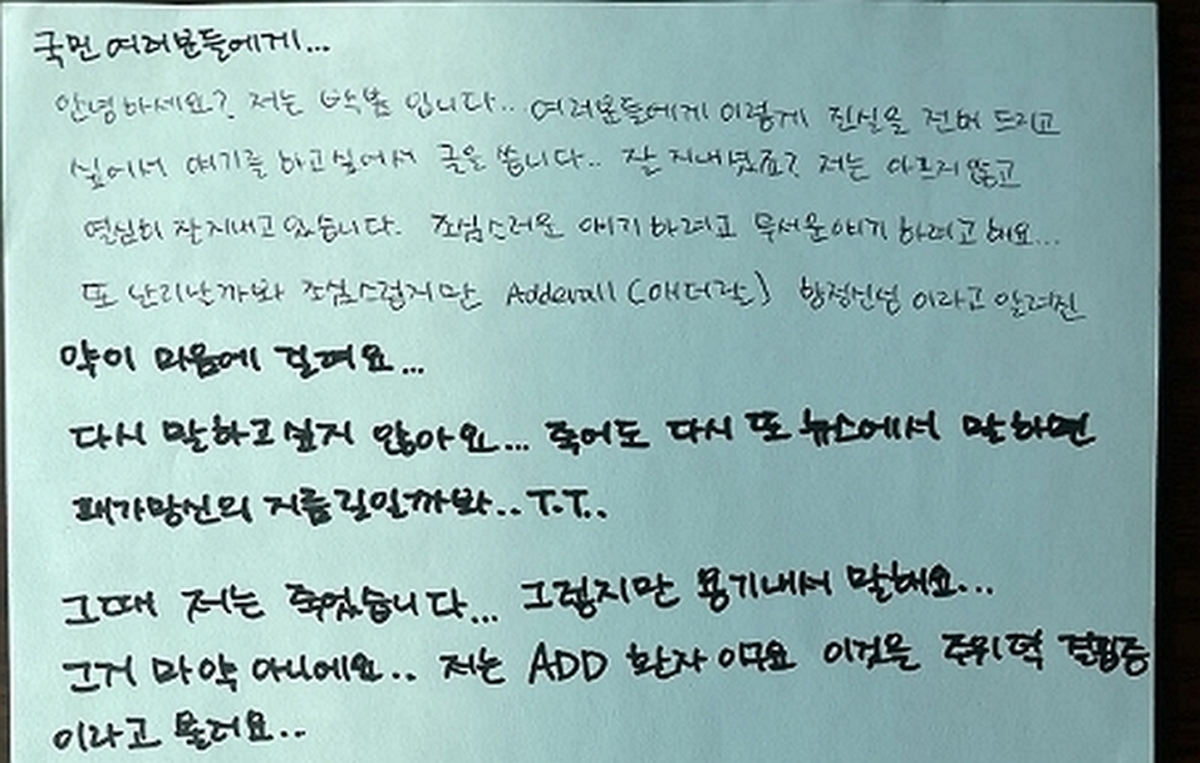 국민 여러분들에게...
안녕하세요? 저는 박봄 입니다.. 여러분들에게 이렇게 진실을 전버 드리고
싶어서 얘기를 하고싶어서 글을 씁니다.. 잘 지내셨죠? 저는 아프지않고
열심히 잘지내고 있습니다. 조심스러운 얘기하려고 무서운얘기 하려고해요...
또 난리날까봐 조심스럽지만 Adderall (애더럴) 향정신성 이라고 알려진
약이 마음에 걸려요...
다시 말하고싶지 않아요... 죽어도 다시 또 뉴스에서 말하면
패가망신의 지름길일까봐.. T.T..
그때 저는 죽었습니다... 그렇지만 용기내서 말해요...
그거 마약 아니에요.. 저는 ADD 환자이구요 이것은 주위력 결핍증
이라고 불러요..